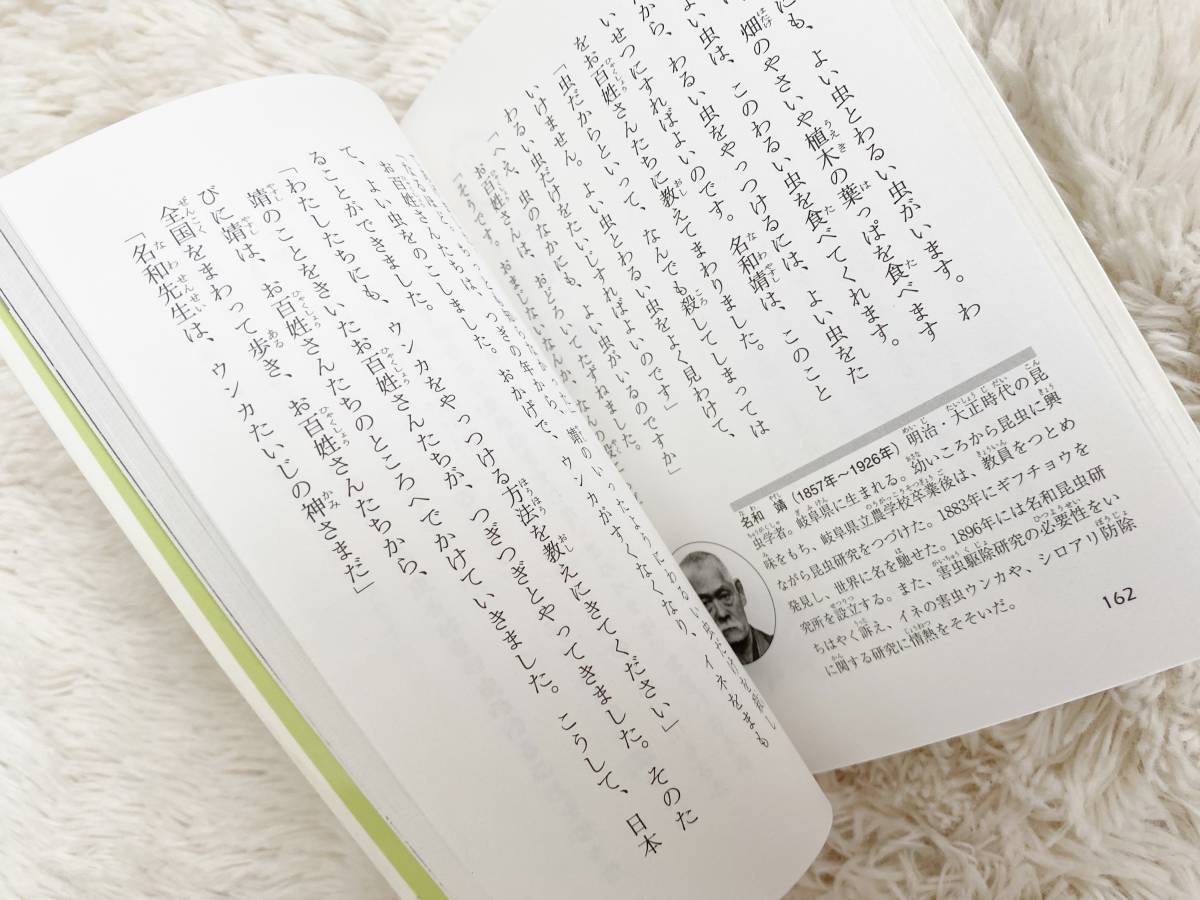 にも、よい虫とわるい虫がいます。わ
畑のやさいや植木の葉っぱを食べます
よい虫は、このわるい虫を食べてくれます。
から、わるい虫をやっつけるには、よい虫をた
いせつにすればよいのです。名和靖は、このこと
をお百姓さんたちに教えてまわりました。
「虫だからといって、なんでも殺してしまっては
いけません。よい虫とわるい虫をよく見わけて、
わるい虫だけをたいじすればよいのです」
「へえ、虫のなかにも、よい虫がいるのですか」
お百姓さんは、おどろいてたずねました。
「そうです。
名和 靖(1857年〜1926年)明治・大正時代の昆
虫学者。岐阜県に生まれる。幼いころから昆虫に興
味をもち、岐阜県立農学校卒業後は、教員をつとめ
ながら昆虫研究をつづけた。1883年にギフチョウを
発見し、世界に名を馳せた。1896年には名和昆虫研
究所を設立する。また、害虫駆除研究の必要性をい
ちはやく訴え、イネの害虫ウンカや、シロアリ防除
に関する研究に情熱をそそいだ。
162
つぎの年から、靖のいったようにわるい虫だけを殺し
て、よい虫をのこしました。おかげで、ウンカがすくなくなり、イネをまも
ることができました。
「わたしたちにも、ウンカをやっつける方法を教えにきてください」
靖のことをきいたお百姓さんたちが、つぎつぎとやってきました。そのた
びに靖は、お百姓さんたちのところへでかけていきました。こうして、日本
全国をまわって歩き、お百姓さんたちから、
「名和先生は、ウンカたいじの神さまだ」